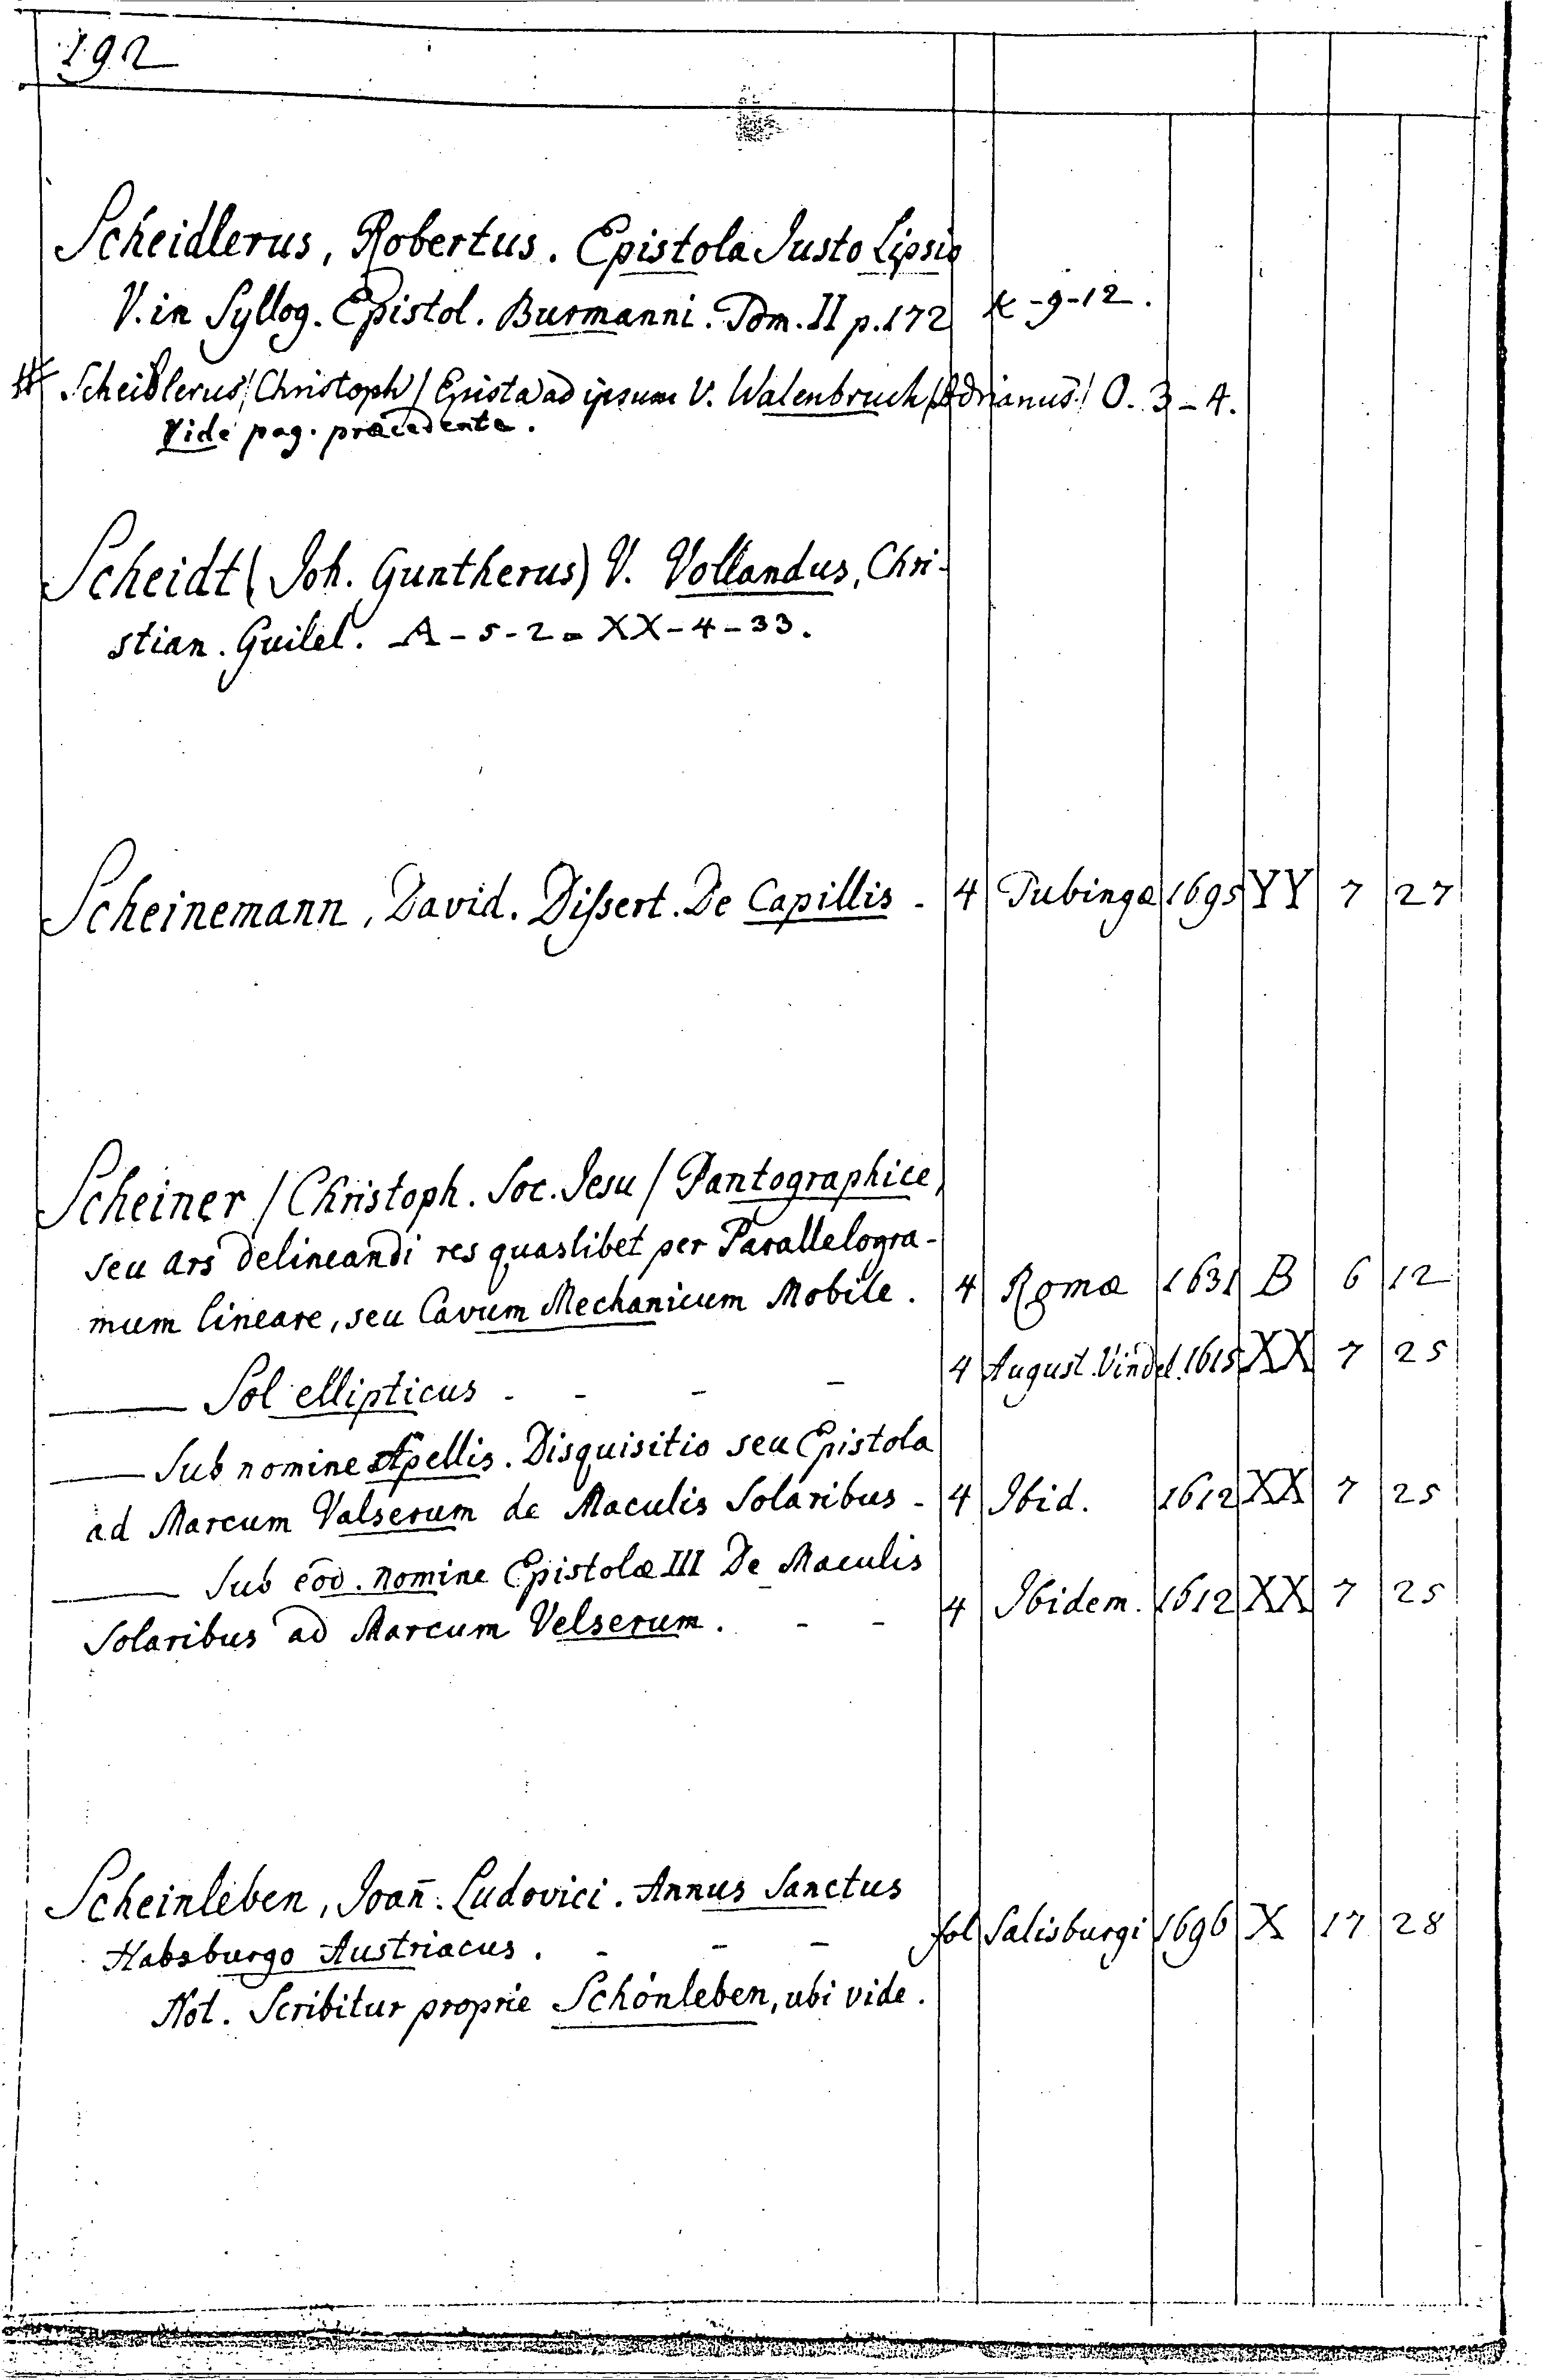 192
Scheidlerus, Robertus. Epistola Justo Lipsio
V. in Syllog. Epistol. Burmanni. Tom. II p. 172 K-9-12.
# Scheidlerus / Christoph / Epista ad ipsum V. Walenbruch / Adrianus / O. 3-4.
Vide pag. præcedente.
Scheidt (Joh. Guntherus) V. Vollandus, Chri-
stian. Guilel. A-5-2 = XX-4-33.
Scheinemann, David. Dissert. De Capillis - 4 Tubingæ 1695 YY 7 27
Scheiner / Christoph. Soc. Jesu / Pantographice,
seu ars delineandi res quaslibet per Parallelogra-
mum lineare, seu Cavum Mechanicum Mobile. 4 Romæ 1631 B 6 12
—— Sol ellipticus - - - - 4 August. Vindel. 1615 XX 7 25
—— Sub nomine Apellis. Disquisitio seu Epistola
ad Marcum Valserum de Maculis Solaribus - 4 Ibid. 1612 XX 7 25
—— Sub eōd. nomine Epistolæ III De Maculis
Solaribus ad Marcum Velserum. - - 4 Ibidem. 1612 XX 7 25
Scheinleben, Joan̄. Ludovici. Annus Sanctus
Habsburgo Austriacus. - - - fol Salisburgi 1696 X 17 28
Not. Scribitur proprie Schönleben, ubi vide.